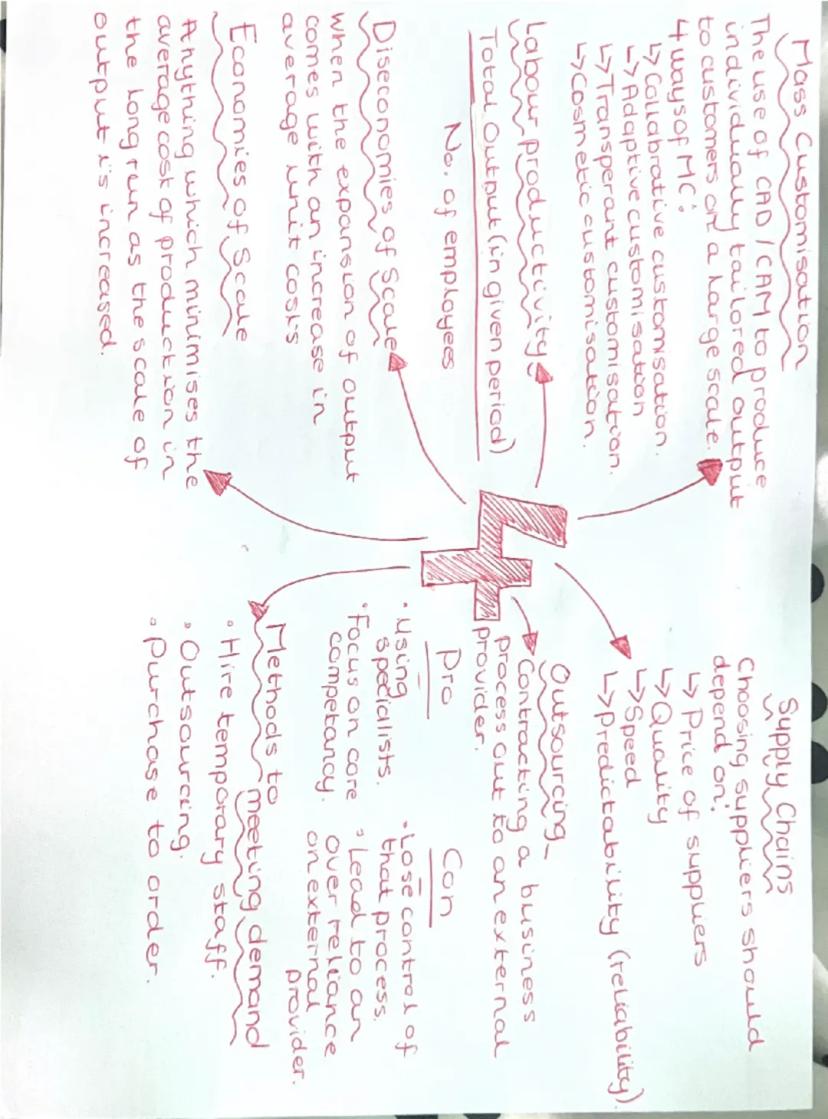 Mass Customisation
The use of CAD/CAM to produce
individually tailored output
to customers on a large scale.
4 ways of MC:
↳ Collabrative customisation.
↳ Adaptive customisation
↳ Transperant customisation.
↳ Cosmetic customisation.
Labour productivity
Total output (in given period)
No. of employees
Diseconomies of Scale
when the expansion of output
comes with an increase in
average unit costs
Economies of Scale
Anything which minimises the
average cost of production in
the long run as the scale of
output is increased.
4
Supply Chains
Choosing suppliers should
depend on:
↳ Price of suppliers
↳ Quality
↳ Speed
↳ Predictability (reliability).
Outsourcing
Contracting a business
process out to an external
provider.
Pro
• Using
specialists.
• Focus on core
competancy.
Con
• Lose control of
that process.
• Lead to an
over reliance
on external
provider.
Methods to meeting demand
• Hire temporary staff.
• Outsourcing.
• Purchase to order.